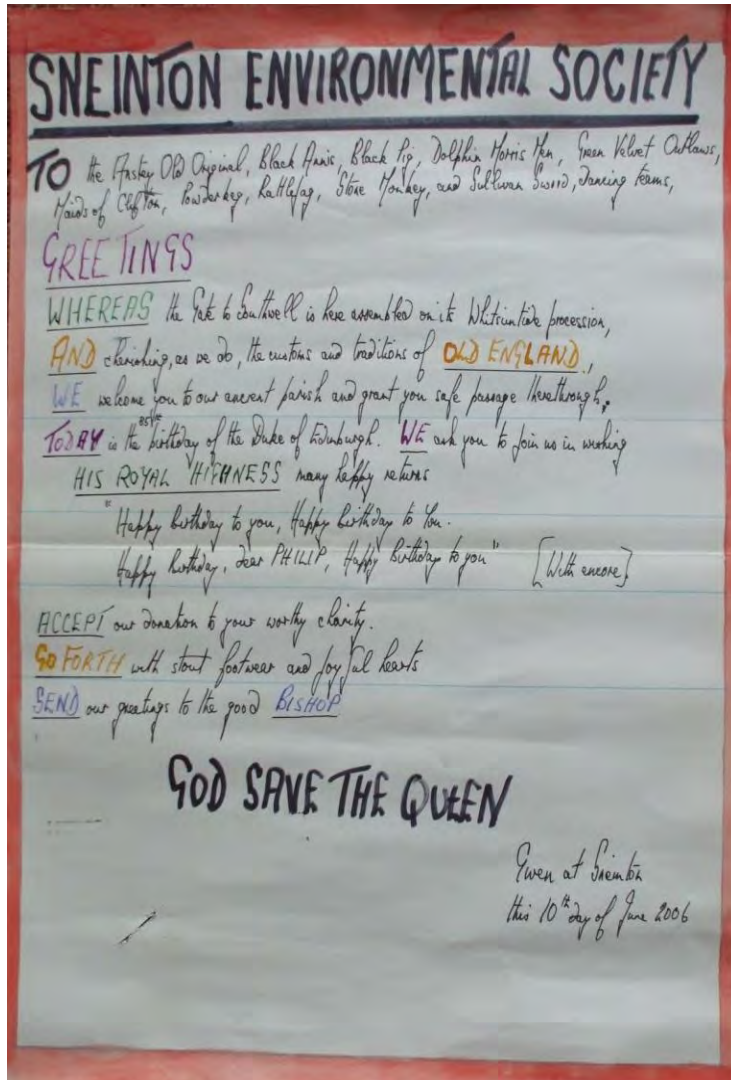 SNEINTON ENVIRONMENTAL SOCIETY
TO the Anstey Old Original, Black Annis, Black Pig, Dolphin Morris Men, Green Velvet Outlaws,
Maids of Clifton, Powderkeg, Rattlejag, Stone Monkey, and Sullivan Sword, Dancing teams,
GREETINGS
WHEREAS the Gate to Southwell is here assembled on its Whitsuntide procession,
AND cherishing, as we do, the customs and traditions of OLD ENGLAND,
WE welcome you to our ancient parish and grant you safe passage therethrough.
TODAY is the 85th birthday of the Duke of Edinburgh. WE ask you to join us in wishing
HIS ROYAL HIGHNESS many happy returns
"Happy birthday to you, Happy birthday to You.
Happy birthday, dear PHILIP, Happy Birthday to you" [With encore]
ACCEPT our donation to your worthy charity.
GO FORTH with stout footwear and joyful hearts
SEND our greetings to the good BISHOP
GOD SAVE THE QUEEN
Given at Sneinton
this 10th day of June 2006